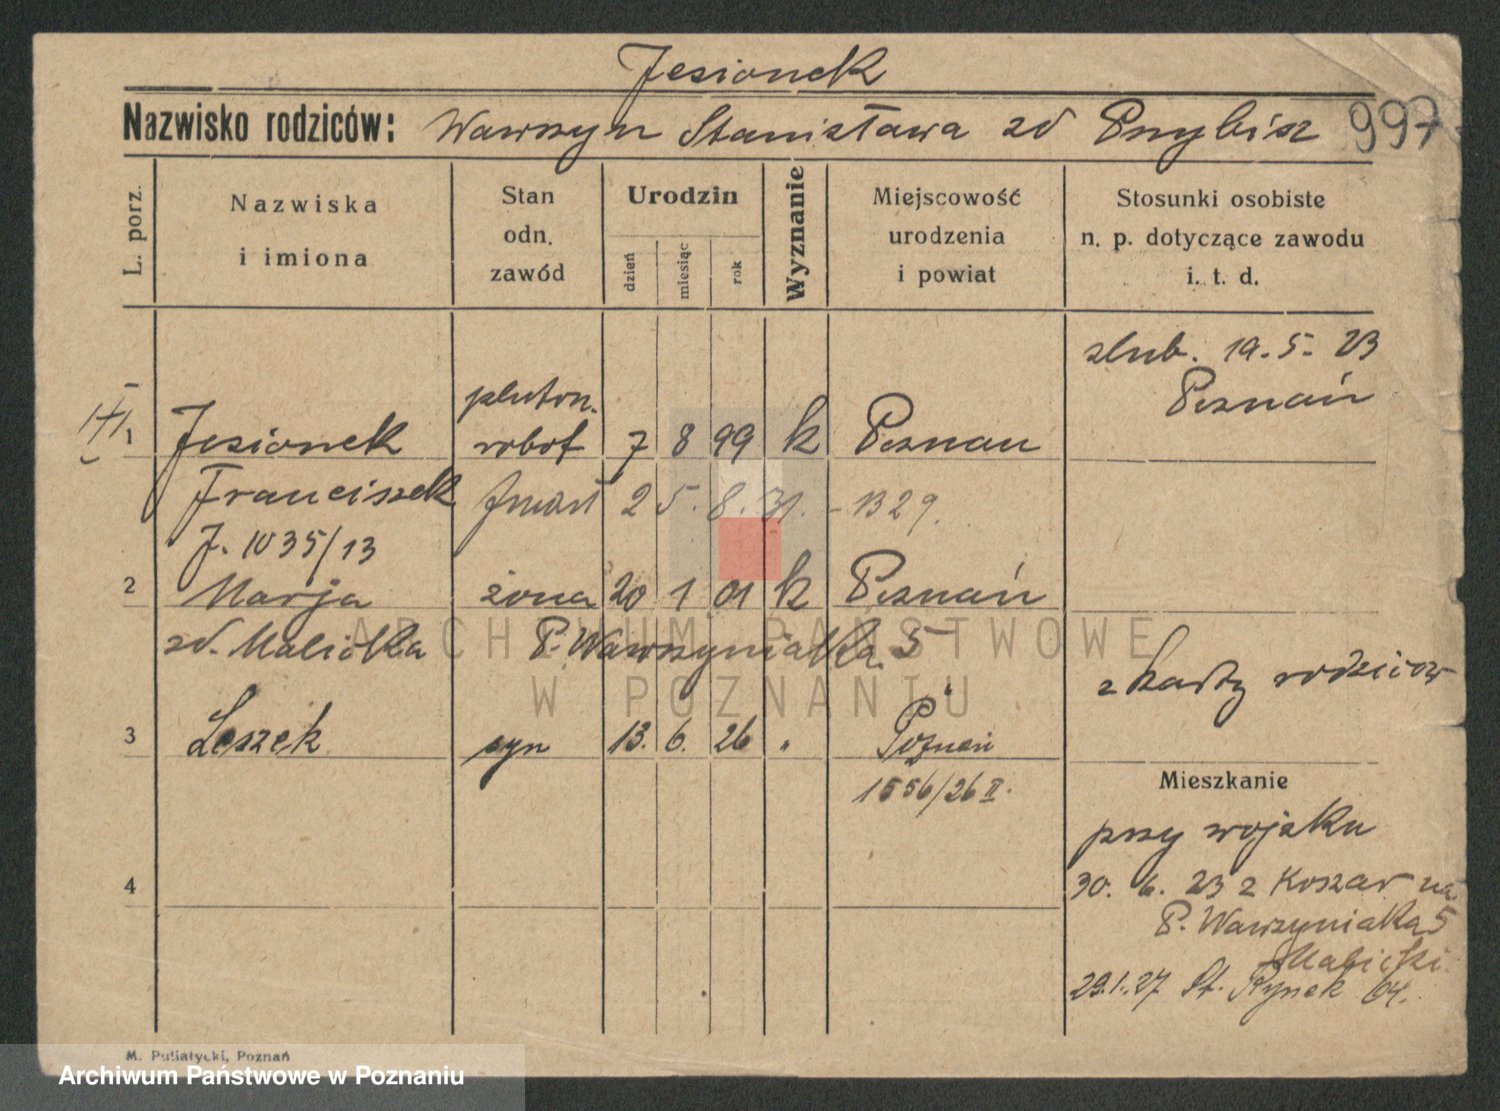 Jesionek
Nazwisko rodziców: Wawrzyn Stanisława zd Przybisz 997
L. porz.
Nazwiska
i imiona
Stan
odn.
zawód
Urodzin
dzień
miesiąc
rok
Wyznanie
Miejscowość
urodzenia
i powiat
Stosunki osobiste
n. p. dotyczące zawodu
i. t. d.
ślub. 19.5.23
Poznań
1 Jesionek pluton. robot 7 8 99 k Poznan
Franciszek zmarł 25.8.31. - 1329.
J. 1035/13
2 Marja żona 20 1 01 k Poznań
zd. Malicka P. Wawrzyniaka 5
z karty rodziców
3 Leszek syn 13. 6. 26 " Poznań
1556/26 II.
Mieszkanie
przy wojsku
4
30. 6. 23 z Koszar na
P. Wawrzyniaka 5
Malicki
29.1.27 St. Rynek 64.
ARCHIWUM PAŃSTWOWE
W POZNANIU
M. Putiatycki, Poznań
Archiwum Państwowe w Poznaniu